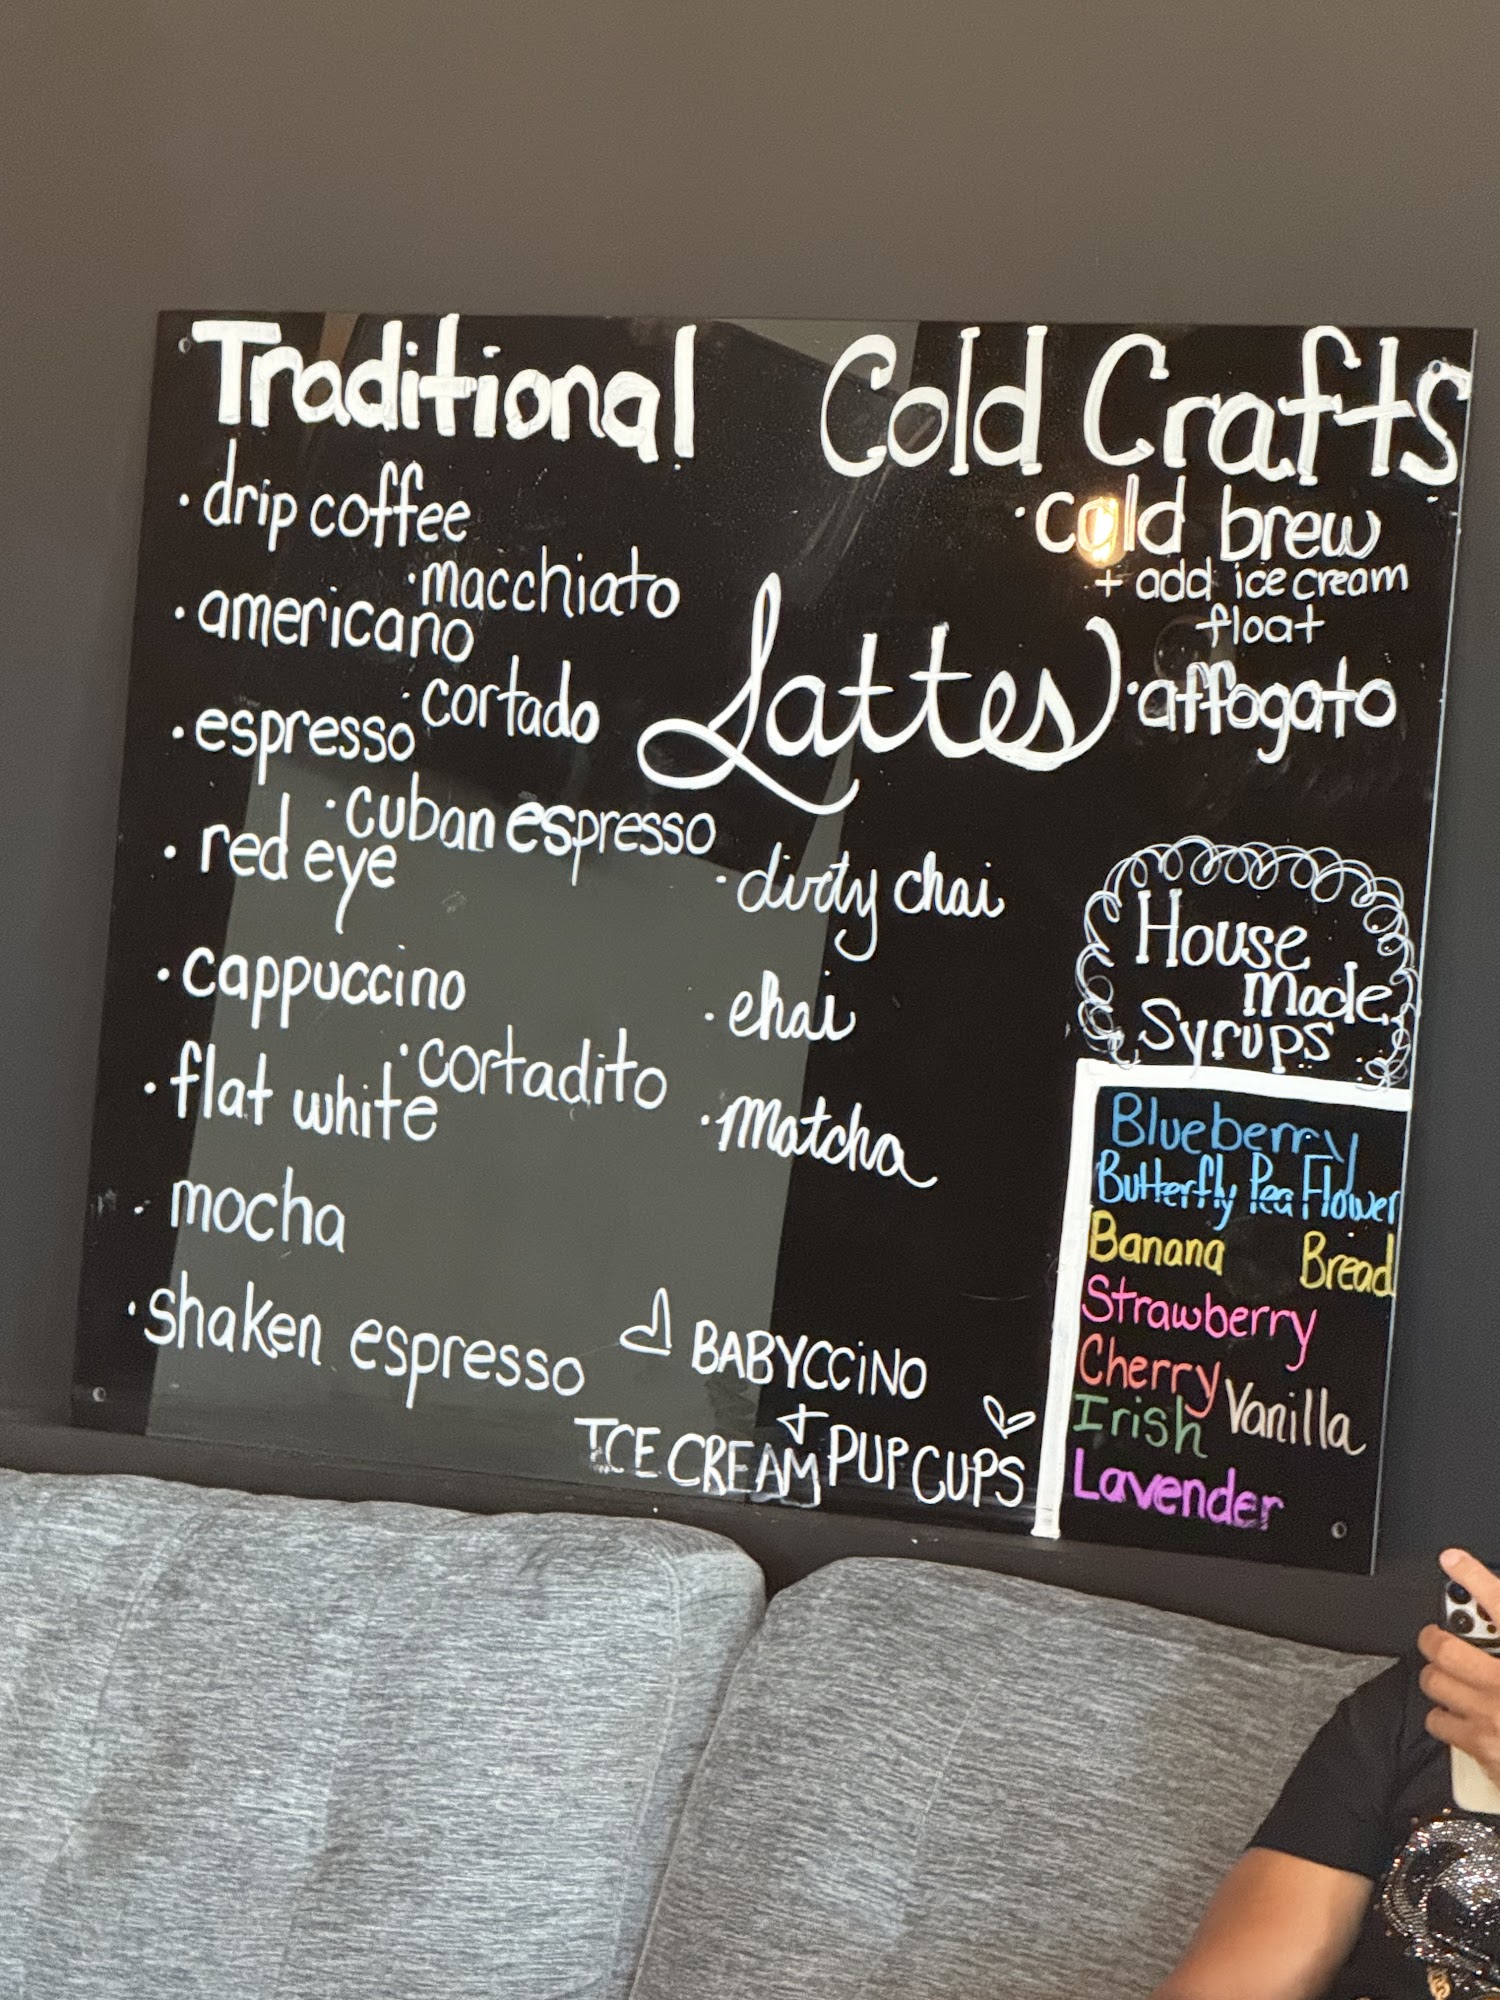 Traditional
· drip coffee
· macchiato
· americano
· cortado
· espresso
· cuban espresso
· red eye
· cappuccino
· cortadito
· flat white
· mocha
· shaken espresso
Cold Crafts
· cold brew
+ add ice cream
float
· affogato
Lattes
· dirty chai
· chai
· matcha
BABYCCINO
+
ICE CREAM PUP CUPS
House
made
Syrups
Blueberry
Butterfly Pea Flower
Banana Bread
Strawberry
Cherry
Vanilla
Irish
Lavender